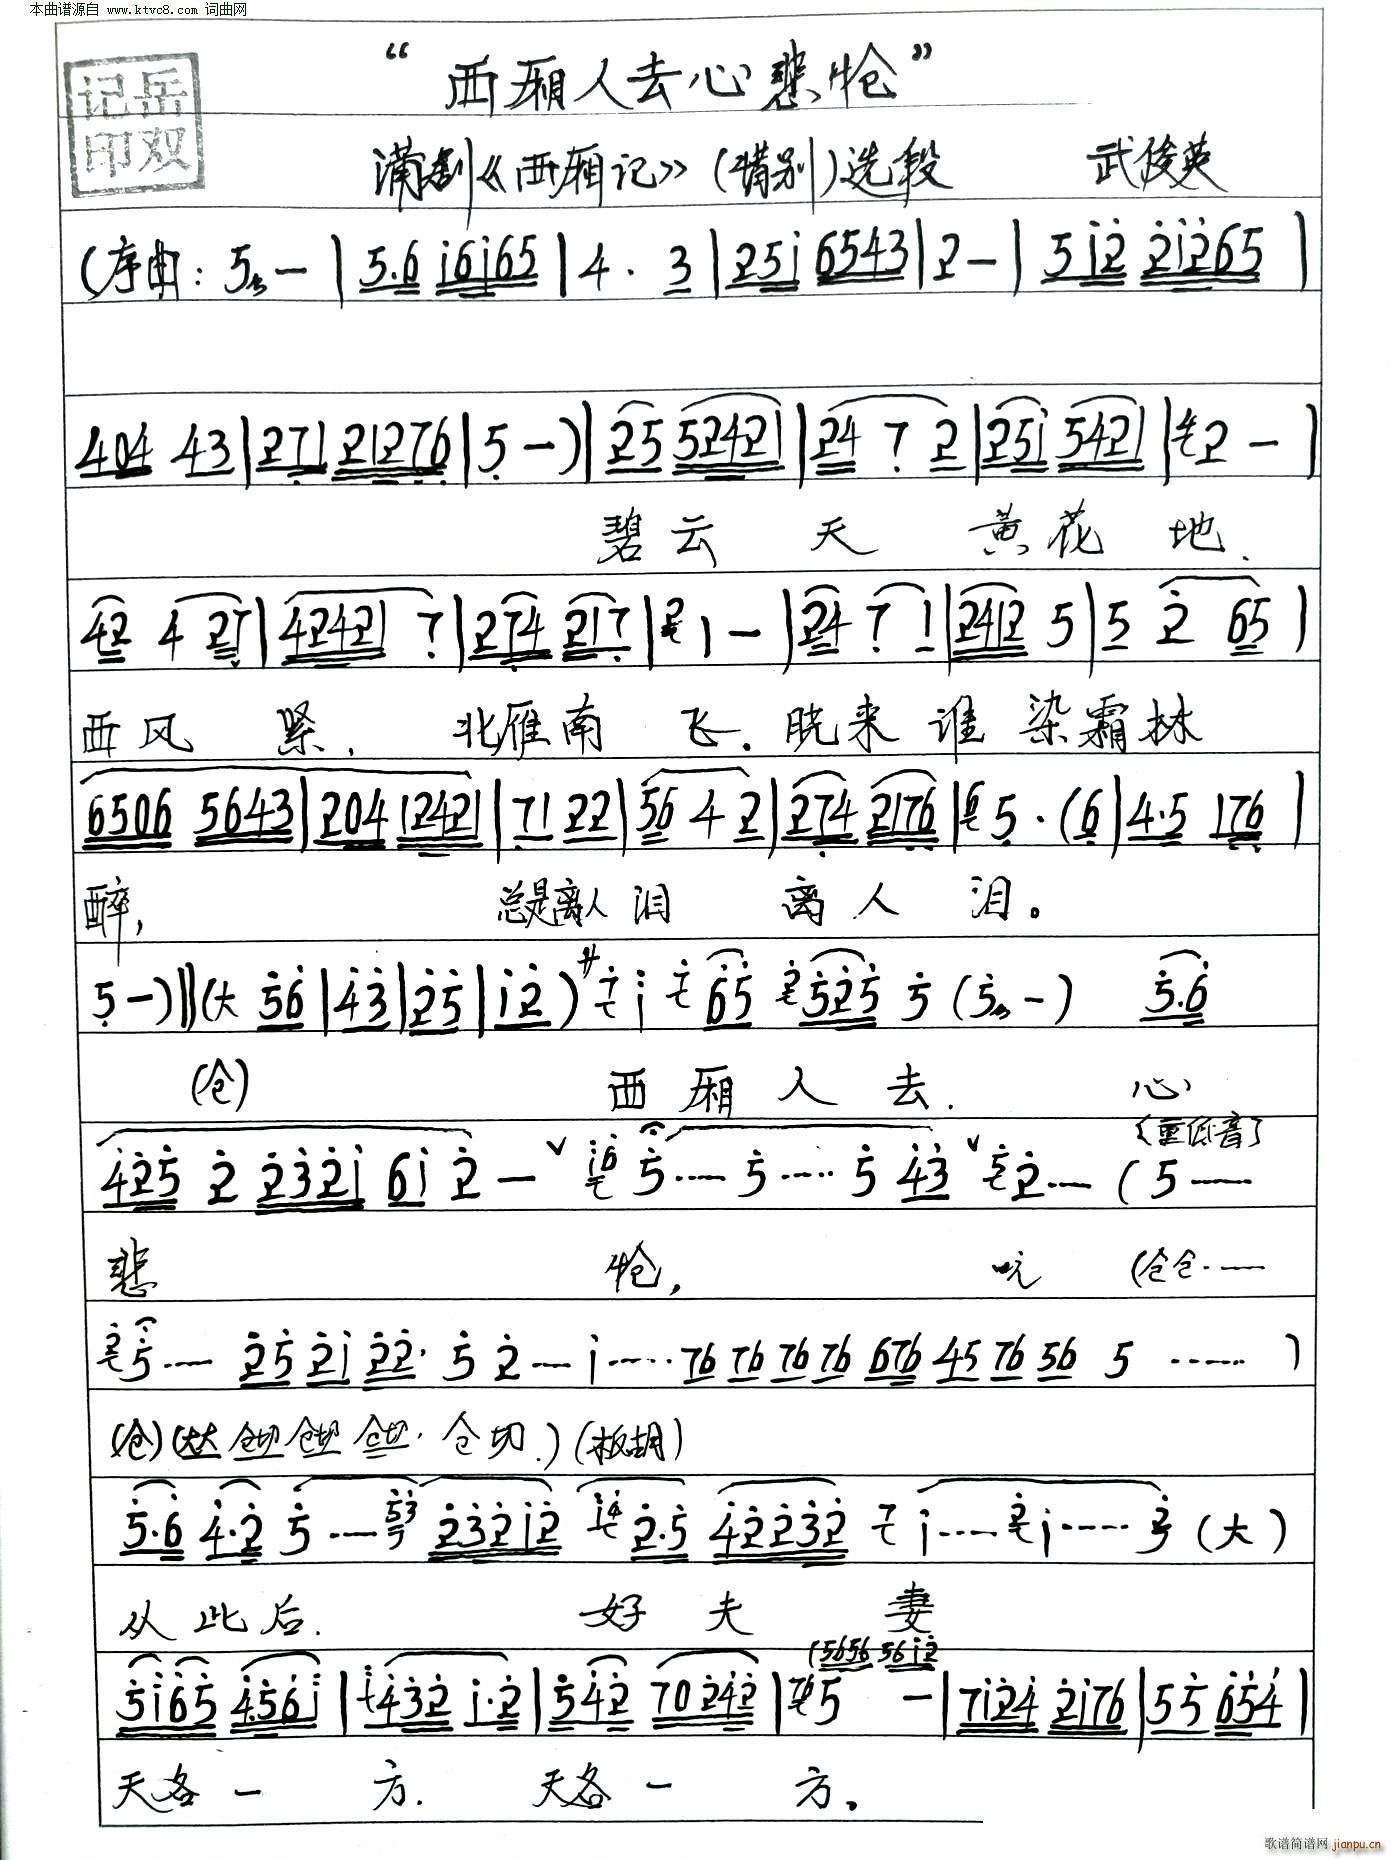 本曲谱源自 www.ktvc8.com 词曲网
“西厢人去心悲怆”
记岳
印双
蒲剧《西厢记》(惜别)选段 武俊英
(序曲: 5 — | 5.6 i6i65 | 4 . 3 | 25i 6543 | 2 — | 5i2 2i265 |
404 43 | 271 21276 | 5 —) | 25 52421 | 24 7 2 | 25i 5421 | 2 — |
碧云 天 黄花 地.
42 4 27 | 42421 7 | 274 217 | 1 — | 24 7 1 | 2412 5 | 5 2 65 |
西风 紧, 北雁南 飞. 晓来 谁 染霜林
6506 5643 | 204 12421 | 71 22 | 56 4 2 | 274 2176 | 5 . (6 | 4.5 176 |
醉, 总是离人 泪 离 人 泪。
5 —) ‖ (大 56 | 43 | 25 | i2 ) サ i 65 525 5 (5 —) 5.6
(仓) 西 厢 人 去. 心
(重低音)
425 2 232i 6i 2 — ∨ 5…… 5…… 5 43 ∨ 2…… ( 5 ——
悲 怆, 吭 (仓仓……
5…… 25 2i 22. 5 2 — i…… 76 76 76 76 676 45 76 56 5 …… )
(仓)(大大 仓切 仓切 仓切. 仓 切.)(板胡)
5.6 4.2 5…… 232i2 2.5 42232 i…… i…… (大)
从 此 后. 好 夫 妻
(5656 56i2
5i65 456i | 432 i.2 | 542 70242 | 5 — | 7i24 2i76 | 55 654 |
天各 一 方. 天各 一 方。
歌谱简谱网 jianpu.cn